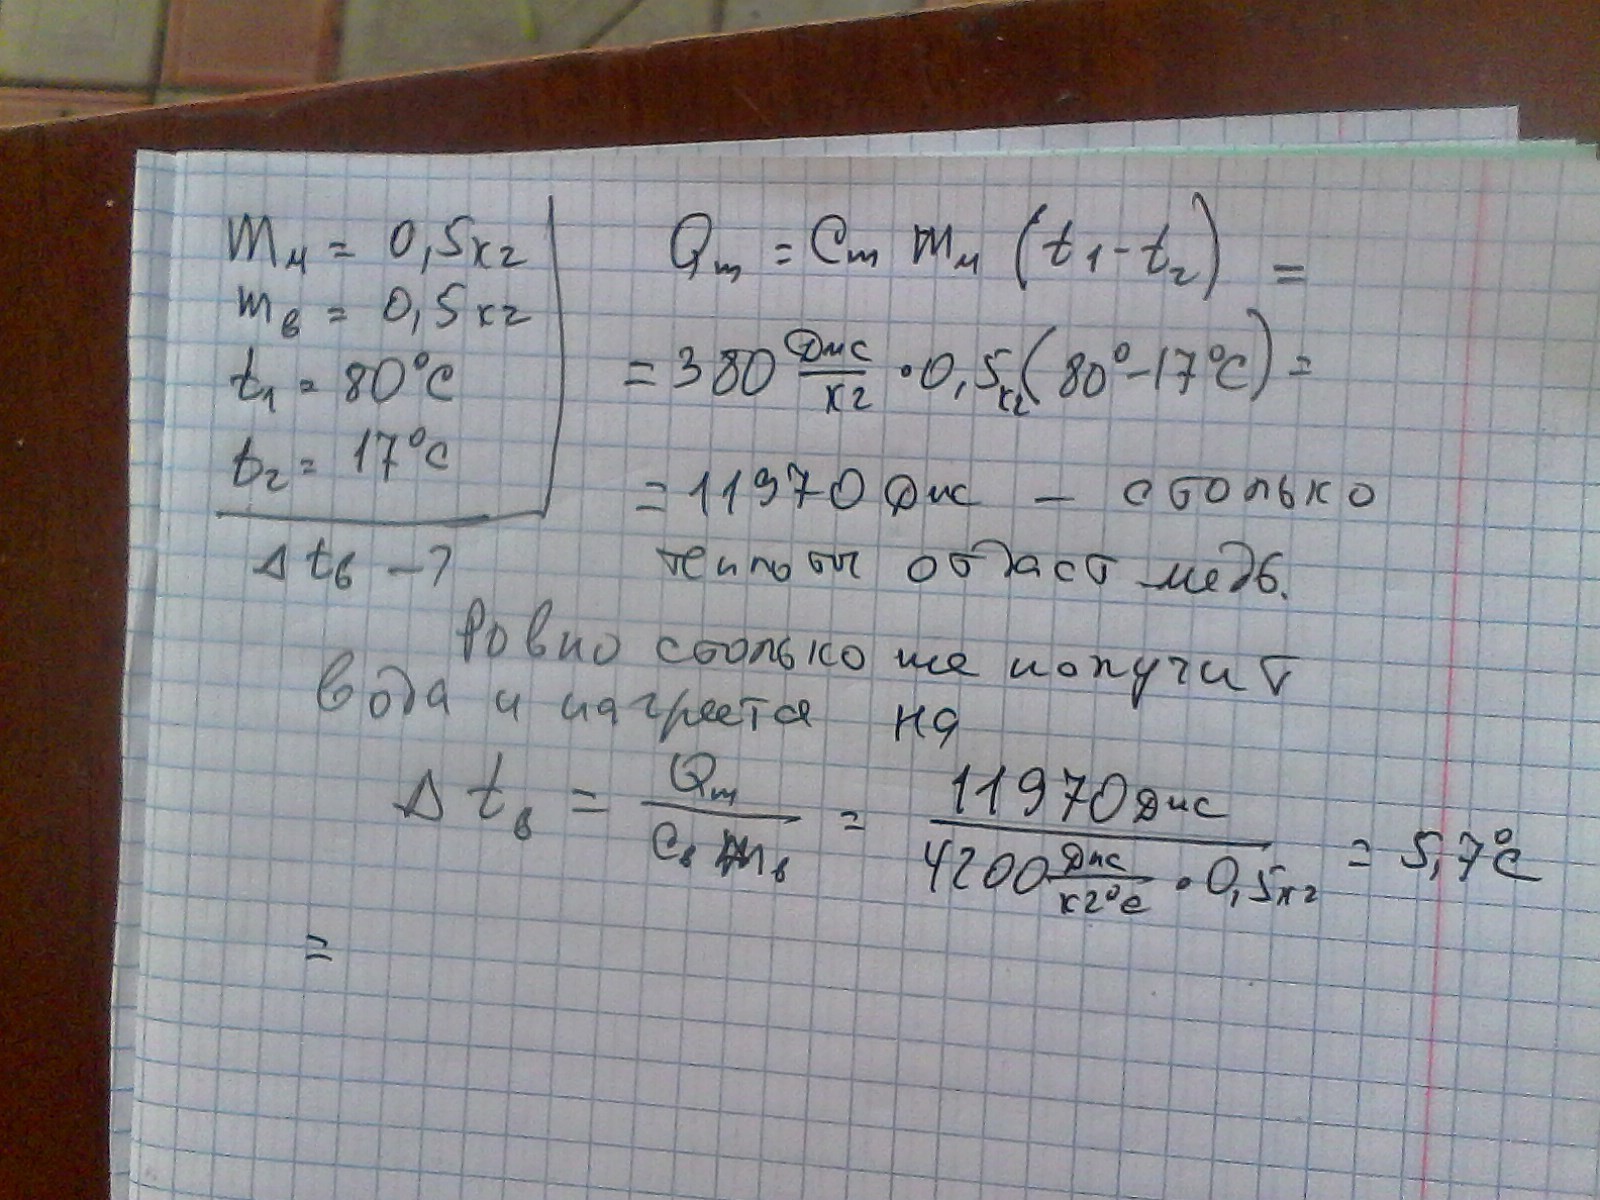 mм = 0,5 кг
mв = 0,5 кг
t₁ = 80°C
t₂ = 17°C
Δtв – ?
Qm = Cm mм (t₁ - t₂) =
= 380 Дж/кг · 0,5 кг (80° – 17°C) =
= 11970 Дж – столько
теплоты отдаст медь.
Ровно столько же получит
вода и нагреется на
Δtв = Qm/Cв mв = 11970 Дж/4200 Дж/кг°C · 0,5 кг = 5,7°C
=